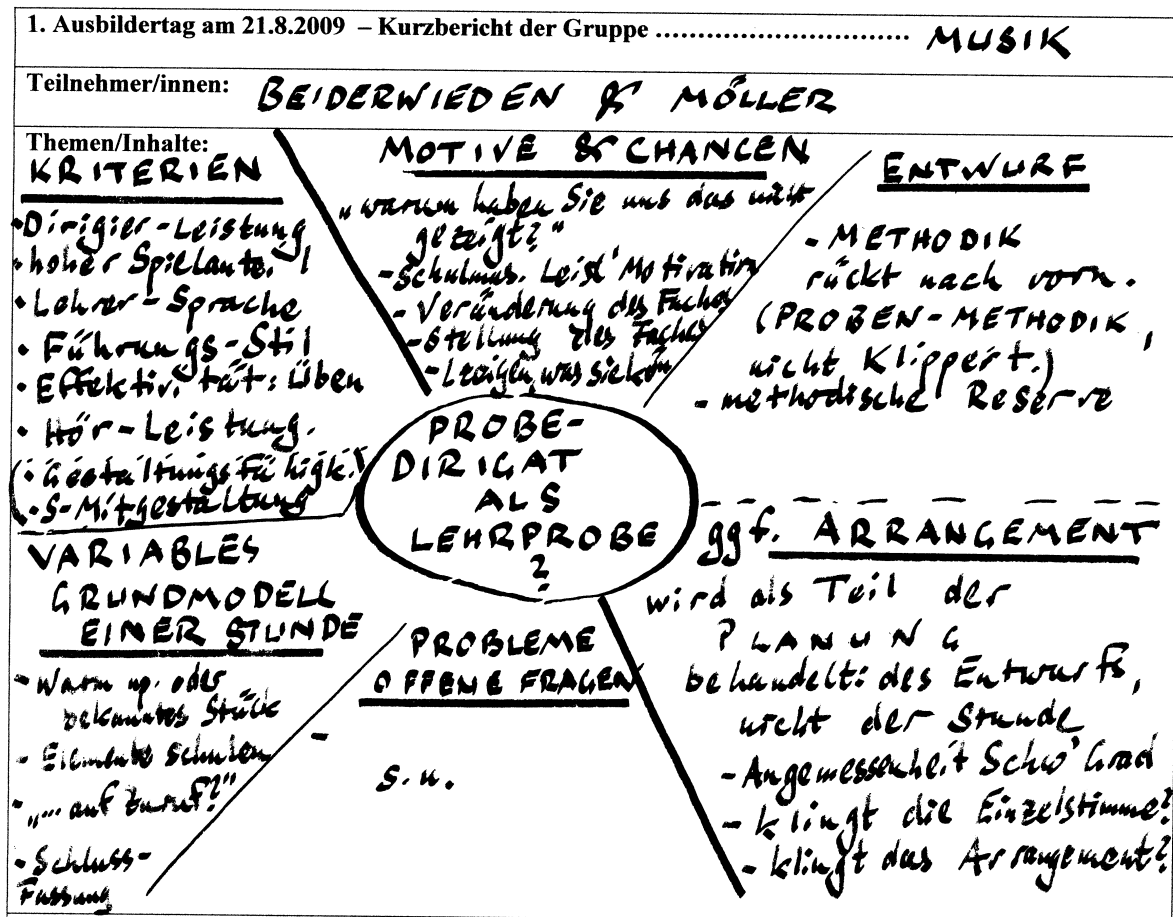 1. Ausbildertag am 21.8.2009 – Kurzbericht der Gruppe ................................ MUSIK
Teilnehmer/innen: BEIDERWIEDEN & MÖLLER
Themen/Inhalte:
KRITERIEN
- Dirigier-Leistung
- hoher Spielante.l
• Lehrer-Sprache
• Führungs-Stil
• Effektivität: Üben
• Hör-Leistung.
(• Gestaltungsfähigk.)
• S-Mitgestaltung
MOTIVE & CHANCEN
„warum haben Sie uns das nicht
gezeigt?"
- Schulmus. Leist' Motivation
- Veränderung des Faches
- Stellung des Faches
- L zeigen, was sie könn
ENTWURF
- METHODIK
rückt nach vorn.
(PROBEN-METHODIK,
nicht Klippert.)
- methodische Reserve
PROBE-
DIRIGAT
ALS
LEHRPROBE
?
VARIABLES
GRUNDMODELL
EINER STUNDE
- Warm up. oder
bekanntes Stück
- Elemente schulen
- „... auf Zuruf?"
- Schluss-
Fassung
PROBLEME
OFFENE FRAGEN
-
s. u.
ggf. ARRANGEMENT
wird als Teil der
PLANUNG
behandelt: des Entwurfs,
nicht der Stunde
- Angemessenheit Schw'Grad
- klingt die Einzelstimme?
- klingt das Arrangement?